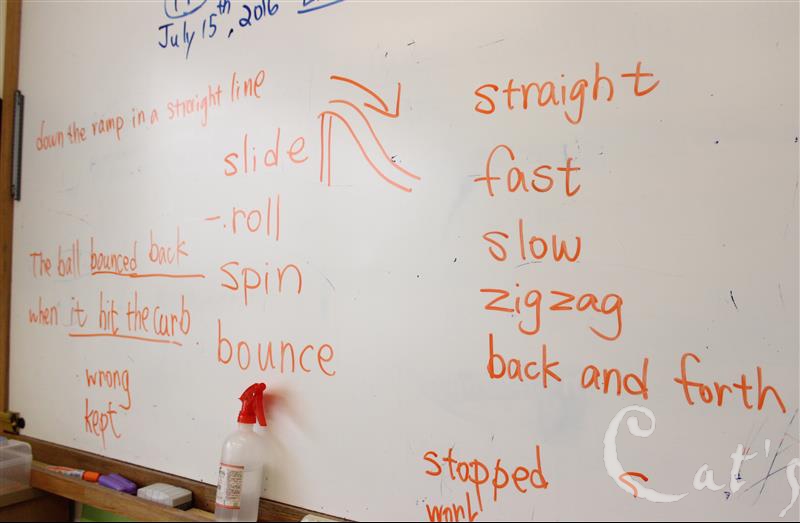 July 15th, 2016
down the ramp in a straight line
slide
- roll
spin
bounce
The ball bounced back
when it hit the curb.
wrong
kept
straight
fast
slow
zigzag
back and forth
stopped
Cat's